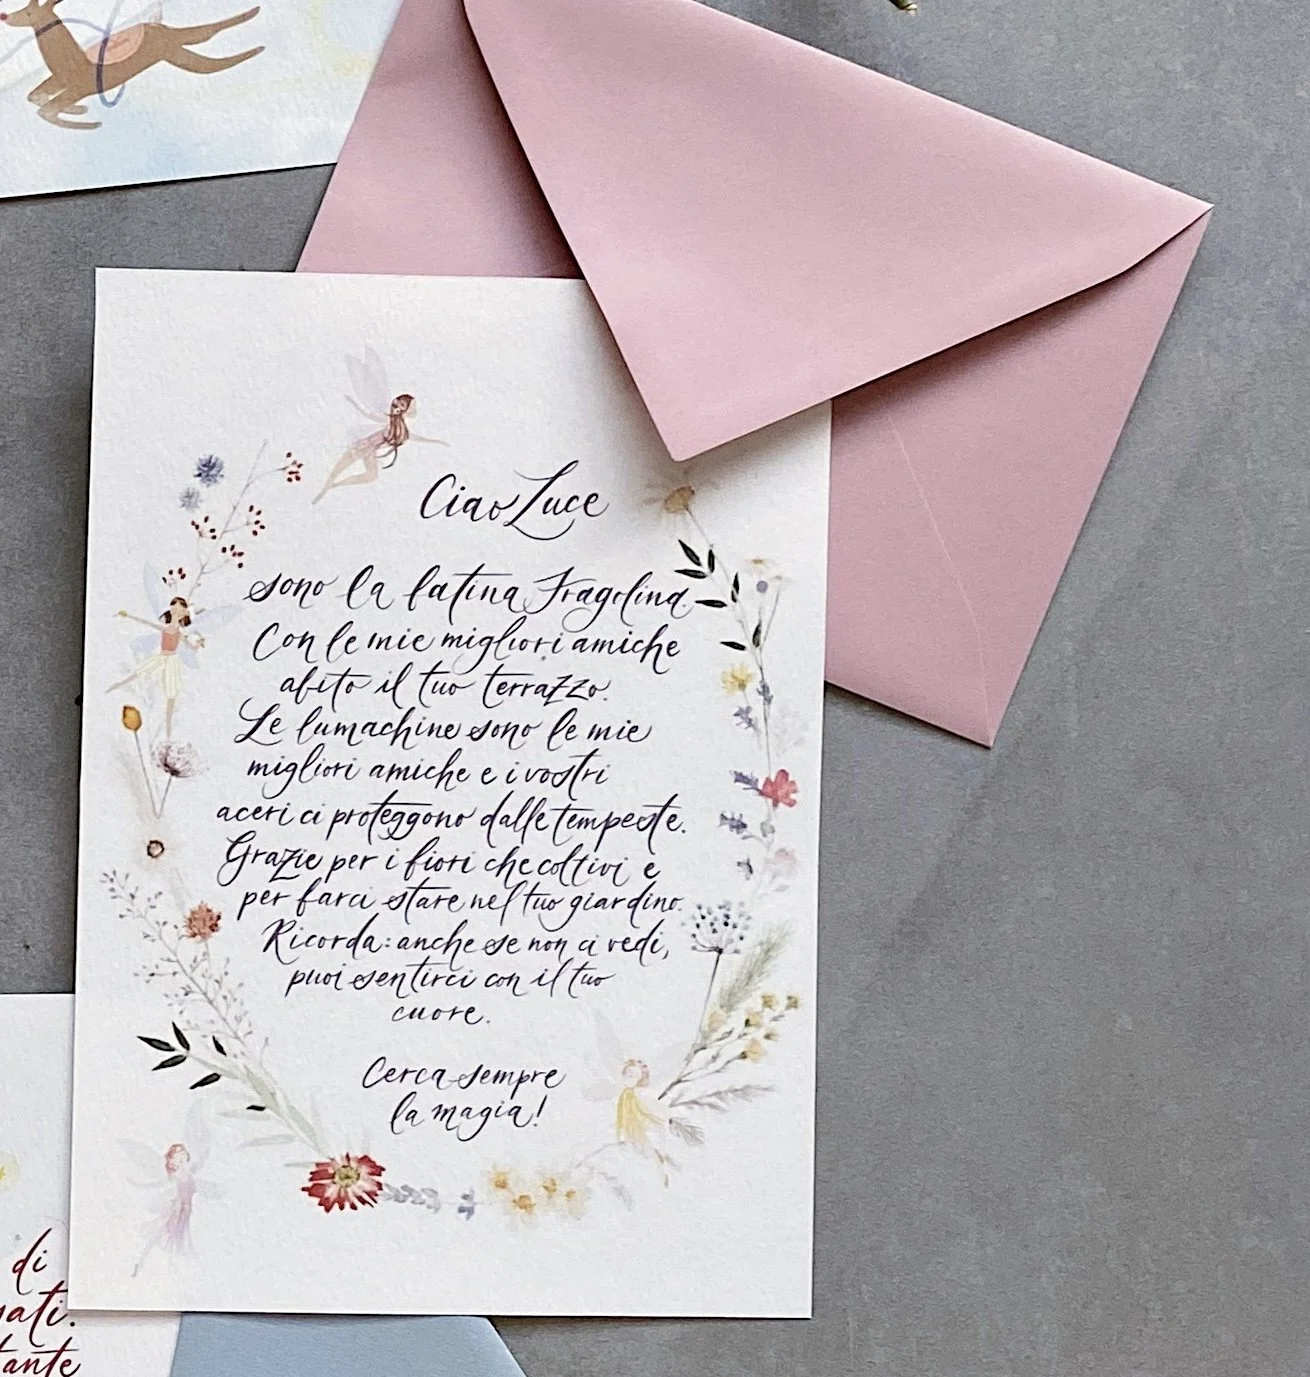 Ciao Luce
sono la fatina Fragolina.
Con le mie migliori amiche
abito il tuo terrazzo.
Le lumachine sono le mie
migliori amiche e i vostri
aceri ci proteggono dalle tempeste.
Grazie per i fiori che coltivi e
per farci stare nel tuo giardino.
Ricorda: anche se non ci vedi,
puoi sentirci con il tuo
cuore.
Cerca sempre
la magia!
di